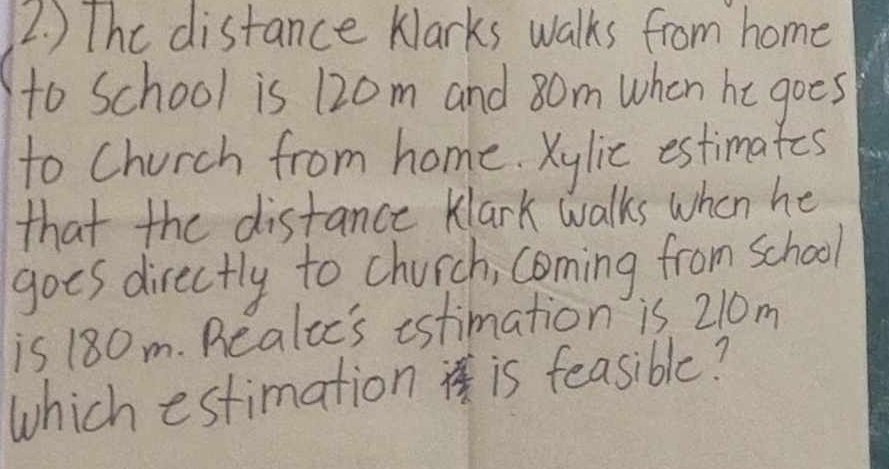 2.) The distance Klarks walks from home
to School is 120m and 80m when he goes
to Church from home. Xylie estimates
that the distance Klark walks when he
goes directly to church, coming from School
is 180m. Realee's estimation is 210m
Which estimation is feasible?